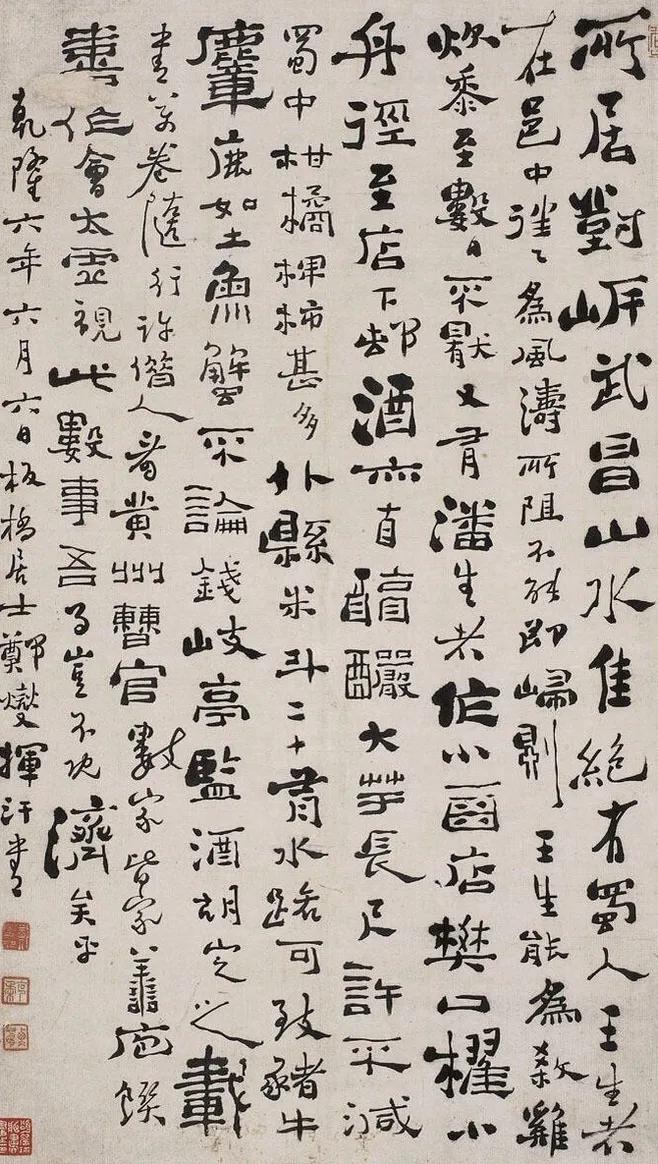 所居對岍武昌山水佳絕有蜀人王生者
在邑中往々為風濤所阻不能即歸則王生能為殺雞
炊黍至數日不厭又有潘生者作小酉店樊口櫂小
舟徑至店下邨酒亦自醇釅大芋長尺許不減
蜀中柑橘椑柿甚多外縣米斗二十有水路可致豬牛
麞鹿如土魚蟹不論錢岐亭監酒胡定之載
書萬卷隨行許借人看黃州曹官數家皆家善庖饌
喜作會太虛視此數事吾事豈不既濟矣乎
乾隆六年六月六日板橋居士鄭燮揮汗書